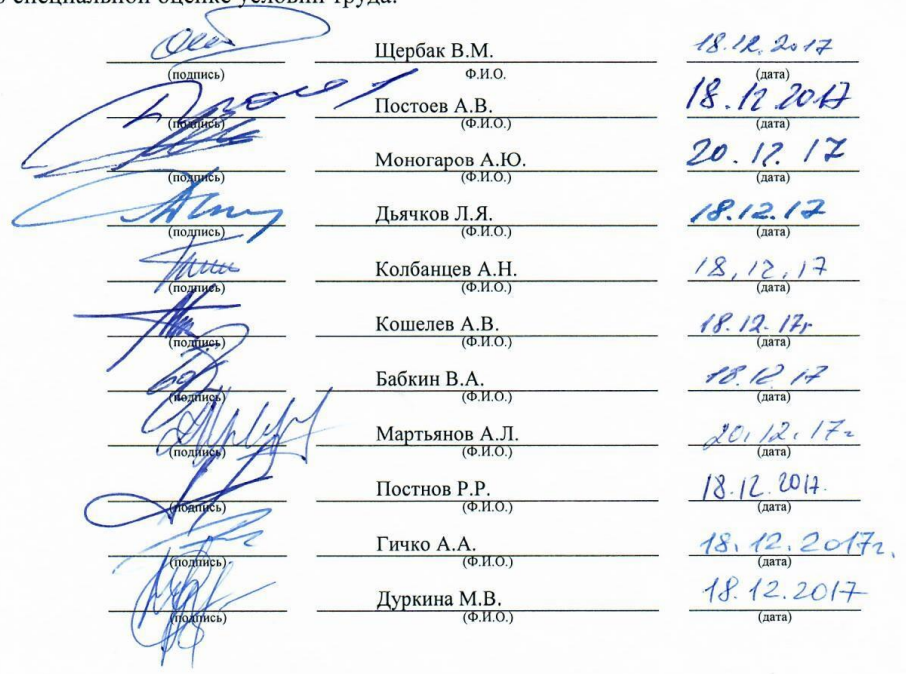 специальной оценке условий труда.
Щербак В.М. 18.12.2017
(подпись) Ф.И.О. (дата)
Постоев А.В. 18.12.2017
(подпись) (Ф.И.О.) (дата)
Моногаров А.Ю. 20.12.17
(подпись) (Ф.И.О.) (дата)
Дьячков Л.Я. 18.12.17
(подпись) (Ф.И.О.) (дата)
Колбанцев А.Н. 18.12.17
(подпись) (Ф.И.О.) (дата)
Кошелев А.В. 18.12.17г
(подпись) (Ф.И.О.) (дата)
Бабкин В.А. 18.12.17
(подпись) (Ф.И.О.) (дата)
Мартьянов А.Л. 20.12.17г
(подпись) (Ф.И.О.) (дата)
Постнов Р.Р. 18.12.2017.
(подпись) (Ф.И.О.) (дата)
Гичко А.А. 18.12.2017г.
(подпись) (Ф.И.О.) (дата)
Дуркина М.В. 18.12.2017
(подпись) (Ф.И.О.) (дата)